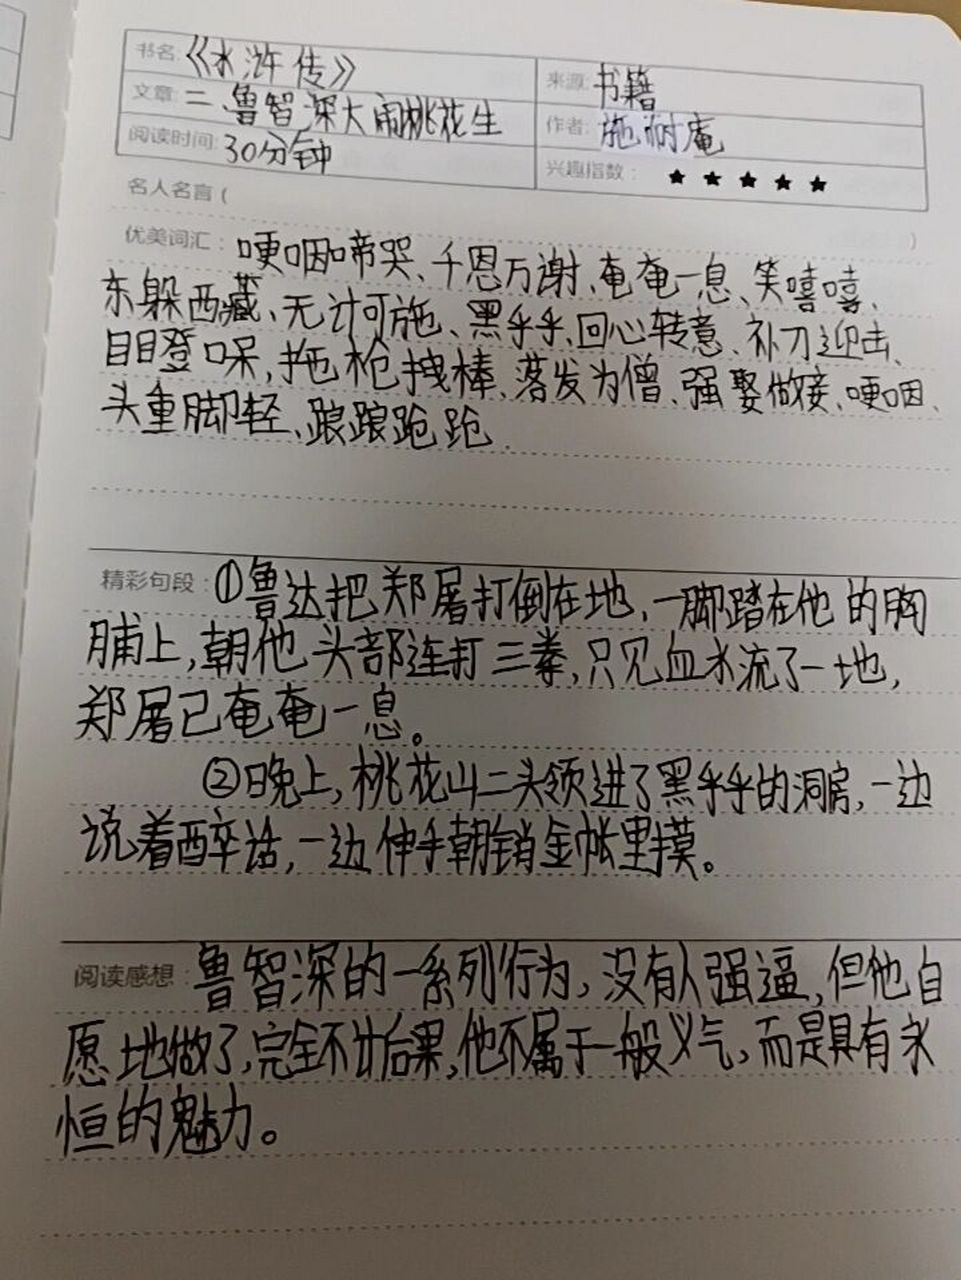 书名:《水浒传》 来源:书籍
文章:二、鲁智深大闹桃花生 作者:施耐庵
阅读时间:30分钟 兴趣指数:★★★★★
名人名言( )
优美词汇:哽咽啼哭、千恩万谢、奄奄一息、笑嘻嘻、
东躲西藏、无计可施、黑乎乎、回心转意、补刀迎击、
目瞪口呆,拖枪拽棒、落发为僧、强娶做接、哽咽、
头重脚轻、踉踉跄跄.
精彩句段:①鲁达把郑屠打倒在地,一脚踏在他的胸
脯上,朝他头部连打三拳,只见血水流了一地,
郑屠已奄奄一息。
②晚上,桃花山二头领进了黑乎乎的洞房,一边
说着醉话,一边伸手朝销金帐里摸。
阅读感想:鲁智深的一系列行为,没有人强逼,但他自
愿地做了,完全不计后果,他不属于一般义气,而是具有永
恒的魅力。